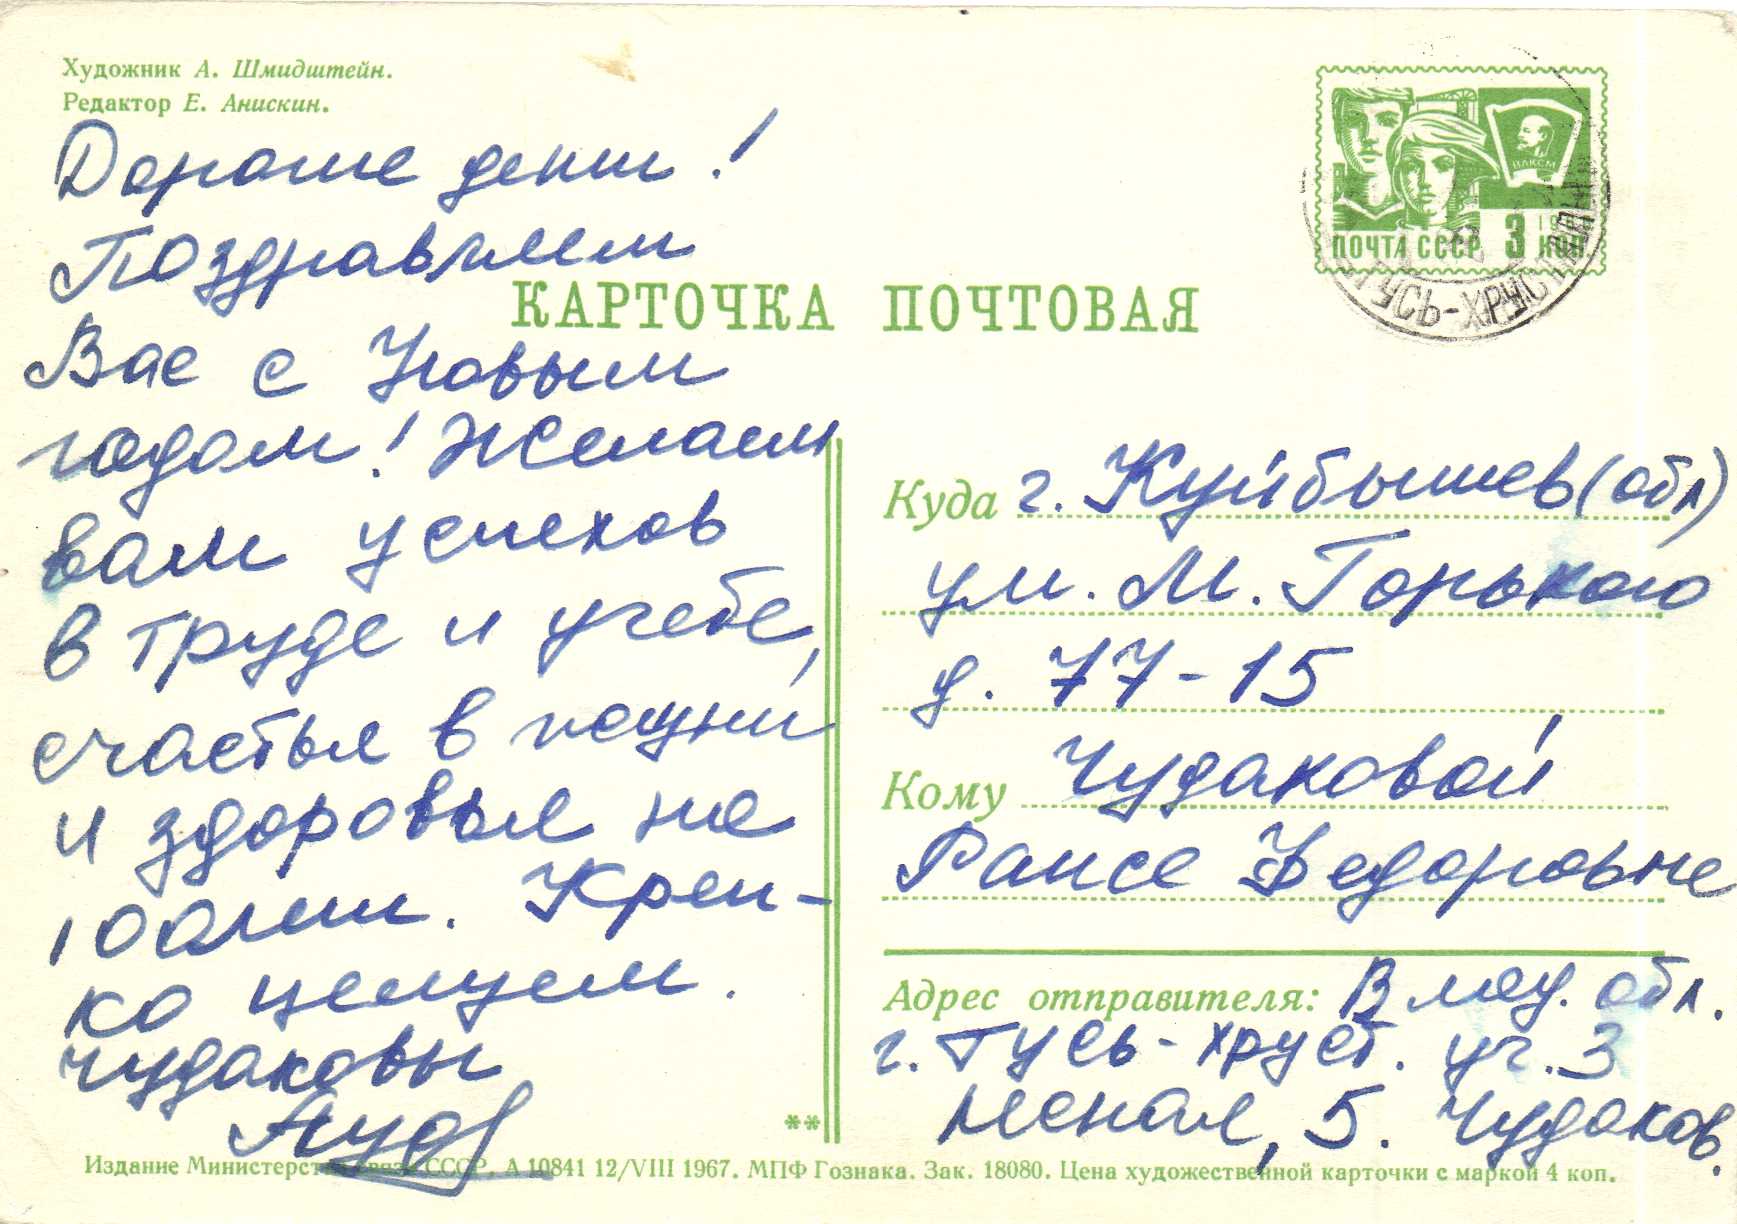 Художник А. Шмидштейн.
Редактор Е. Анискин.
Дорогие дети!
Поздравляем
Вас с Новым
годом! Желаем
вам успехов
в труде и учебе,
счастья в жизни
и здоровья на
100 лет. Креп-
ко целуем.
Чудаковы
ВЛКСМ
ПОЧТА СССР 3 КОП
ГУСЬ-ХРУСТАЛЬНЫЙ
КАРТОЧКА ПОЧТОВАЯ
Куда г. Куйбышев (обл)
ул. М. Горького
д. 77-15
Кому Чудаковой
Раисе Федоровне
Адрес отправителя: Влад. обл.
г. Гусь-хруст. уч. 3
5. Чудаков.
**
Издание Министерства связи СССР. А 10841 12/VIII 1967. МПФ Гознака. Зак. 18080. Цена художественной карточки с маркой 4 коп.